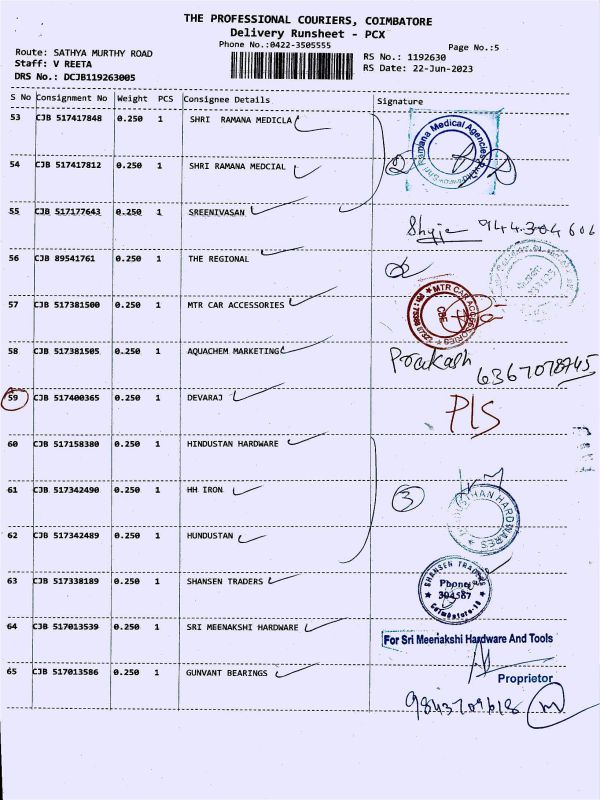 THE PROFESSIONAL COURIERS, COIMBATORE
Delivery Runsheet - PCX
Phone No.:0422-3505555
Page No.:5
Route: SATHYA MURTHY ROAD
Staff: V REETA
DRS No.: DCJB119263005
RS No.: 1192630
RS Date: 22-Jun-2023
S No Consignment No Weight PCS Consignee Details Signature
53 CJB 517417848 0.250 1 SHRI RAMANA MEDICLA
54 CJB 517417812 0.250 1 SHRI RAMANA MEDCIAL
2
Ramana Medical Agencies
55 CJB 517177643 0.250 1 SREENIVASAN
56 CJB 89541761 0.250 1 THE REGIONAL
57 CJB 517381500 0.250 1 MTR CAR ACCESSORIES
MTR CAR ACCESSORIES
CBE
58 CJB 517381505 0.250 1 AQUACHEM MARKETING
Prakash
59 CJB 517400365 0.250 1 DEVARAJ
Pls
60 CJB 517158380 0.250 1 HINDUSTAN HARDWARE
61 CJB 517342490 0.250 1 HH IRON
3
HINDUSTAN HARDWARES
62 CJB 517342489 0.250 1 HUNDUSTAN
63 CJB 517338189 0.250 1 SHANSEN TRADERS
SHANSEN TRADERS
Phone:
394587
Coimbatore-18
64 CJB 517013539 0.250 1 SRI MEENAKSHI HARDWARE
For Sri Meenakshi Hardware And Tools
65 CJB 517013586 0.250 1 GUNVANT BEARINGS
Proprietor
9843709618